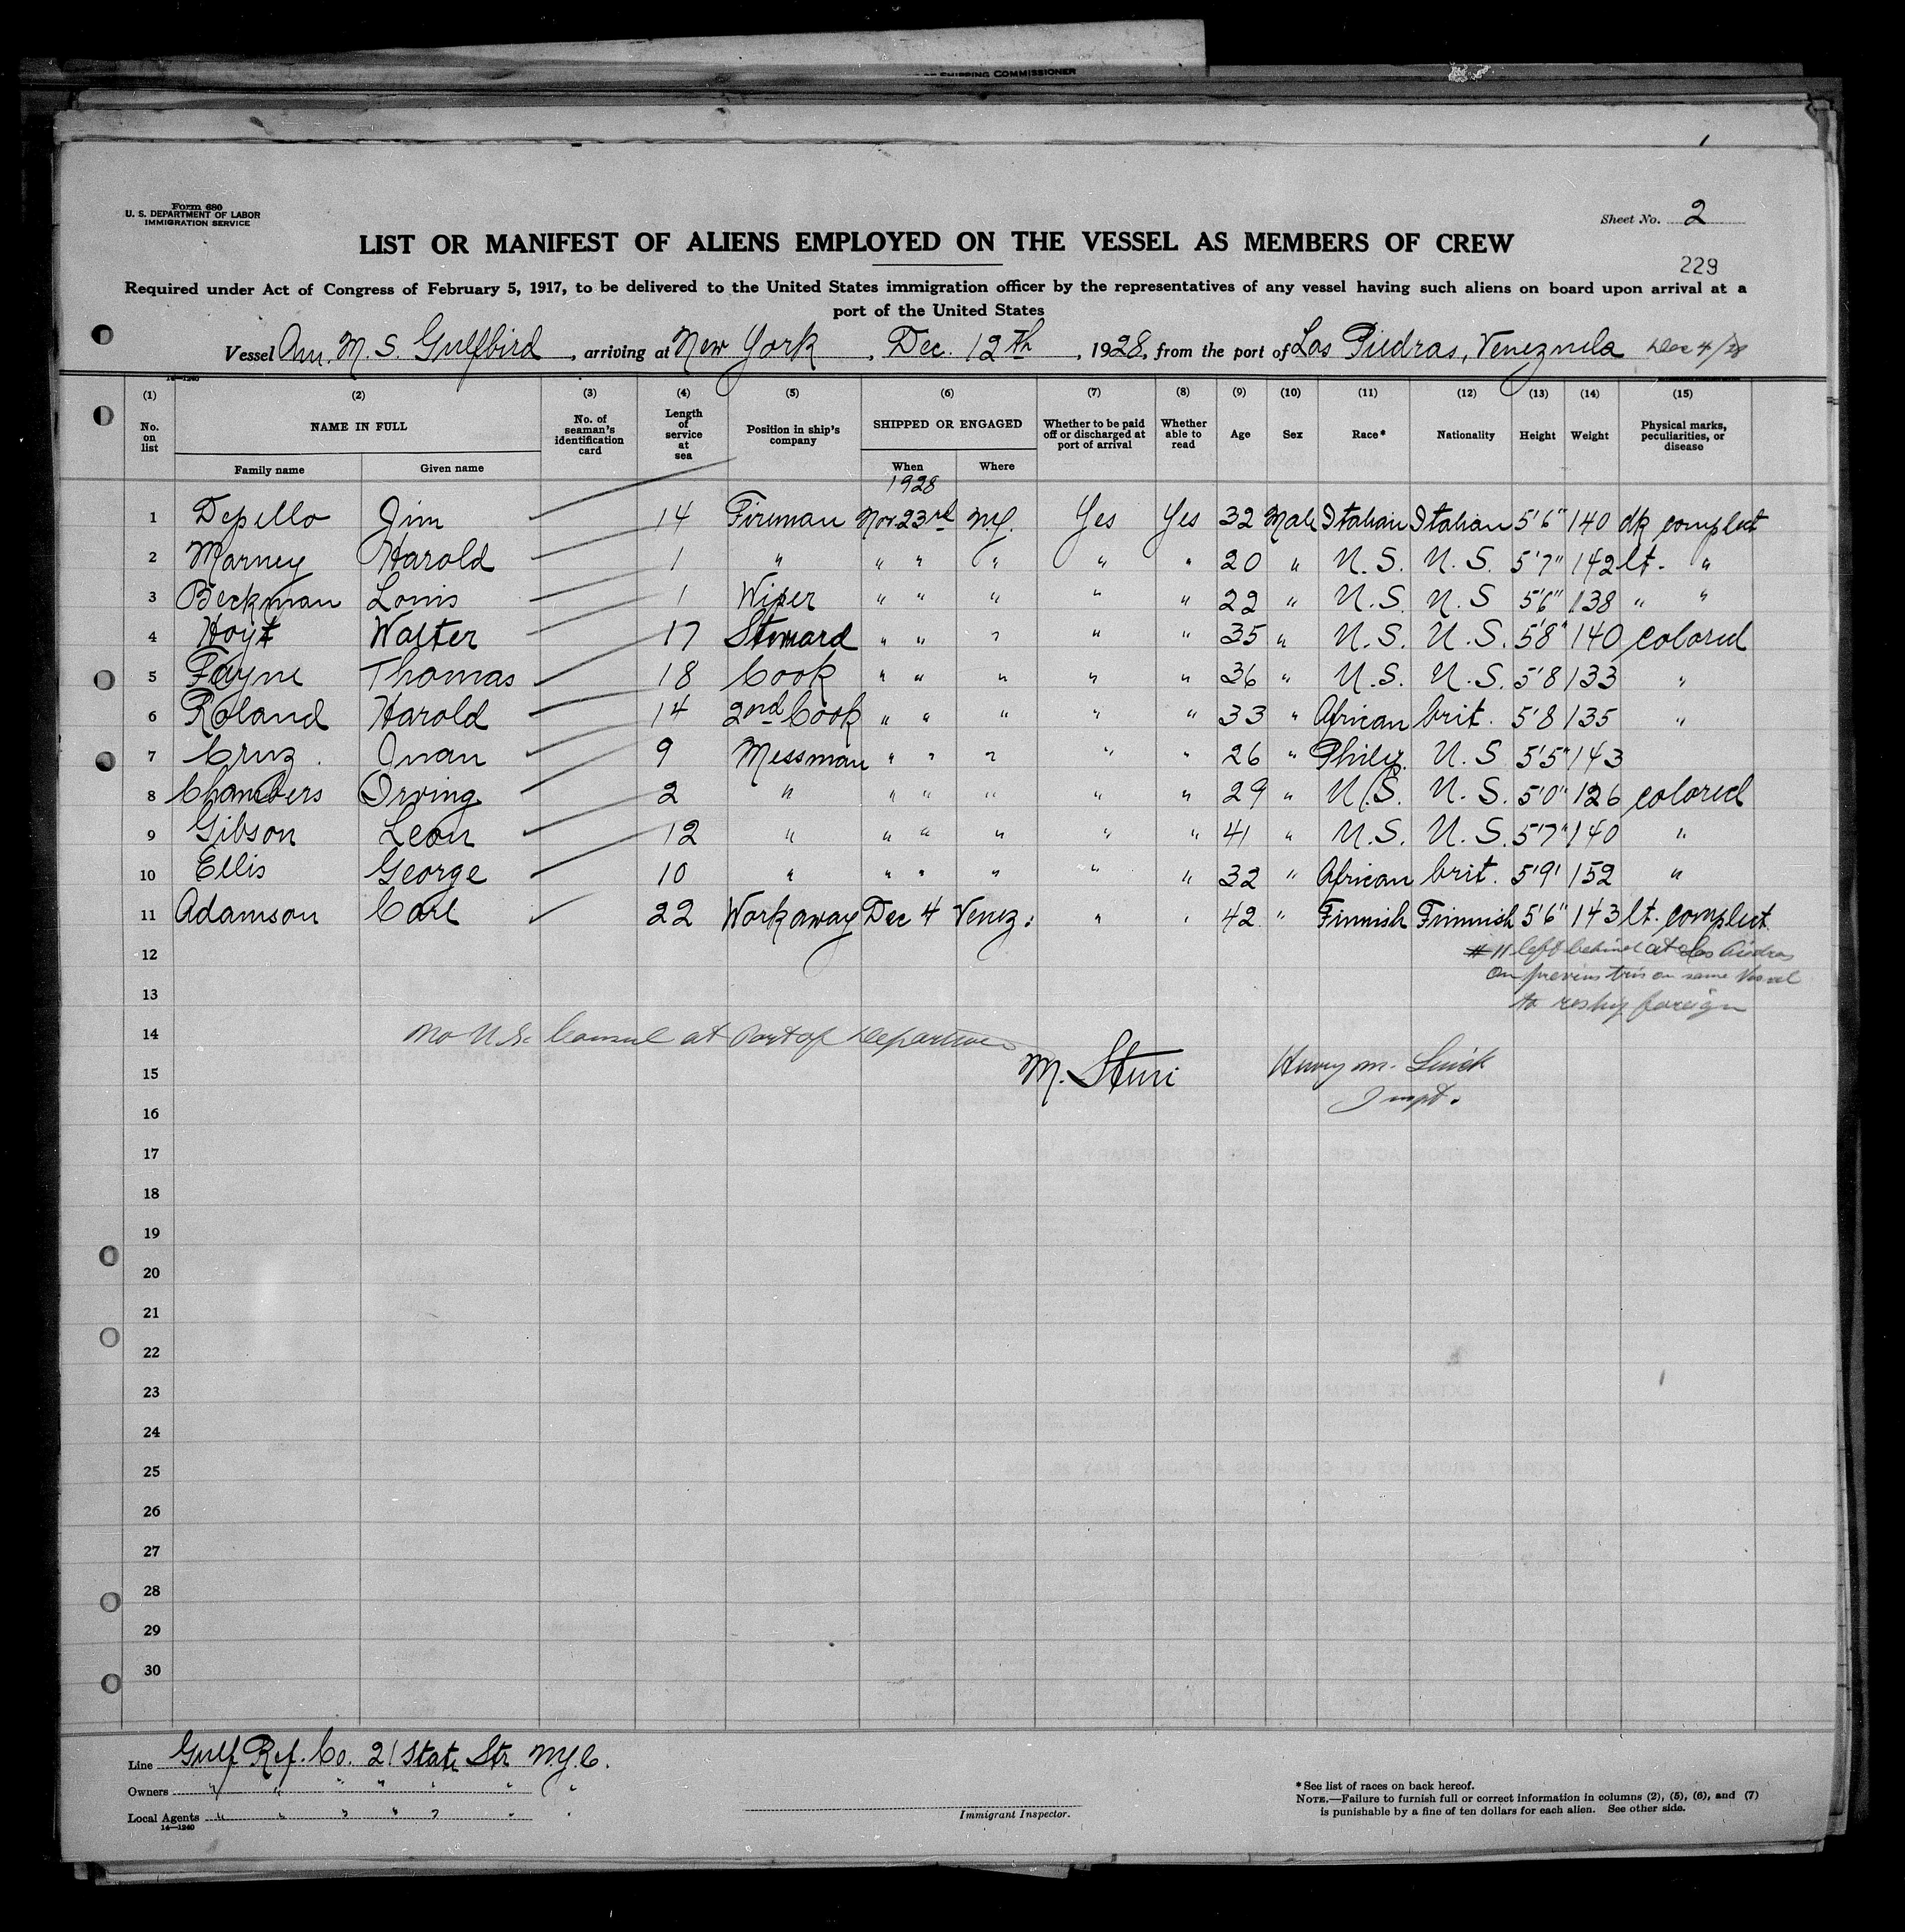 OF SHIPPING COMMISSIONER
Form 680
U. S. DEPARTMENT OF LABOR
IMMIGRATION SERVICE
Sheet No. 2
LIST OR MANIFEST OF ALIENS EMPLOYED ON THE VESSEL AS MEMBERS OF CREW
229
Required under Act of Congress of February 5, 1917, to be delivered to the United States immigration officer by the representatives of any vessel having such aliens on board upon arrival at a
port of the United States
Vessel Am. M. S. Gulfbird, arriving at New York, Dec. 12th, 1928, from the port of Las Piedras, Venezuela Dec 4/28
14—1240
(1) (2) (3) (4) (5) (6) (7) (8) (9) (10) (11) (12) (13) (14) (15)
No. on list NAME IN FULL No. of seaman's identification card Length of service at sea Position in ship's company SHIPPED OR ENGAGED Whether to be paid off or discharged at port of arrival Whether able to read Age Sex Race* Nationality Height Weight Physical marks, peculiarities, or disease
Family name Given name When Where
1928
1 Depello Jim 14 Fireman Nov 23rd NY. Yes Yes 32 Male Italian Italian 5'6" 140 dk complect
2 Marney Harold 1 " " " " " " 20 " U.S. U.S. 5'7" 142 lt. "
3 Beckman Louis 1 Wiper " " " " " 22 " U.S. U.S 5'6" 138 " "
4 Hoyt Walter 17 Steward " " " " " 35 " U.S. U.S. 5'8" 140 colored
5 Payne Thomas 18 Cook " " " " " 36 " U.S. U.S. 5'8 133 "
6 Roland Harold 14 2nd Cook " " " " " 33 " African brit. 5'8 135 "
7 Cruz. Juan 9 Messman " " " " " 26 " Philip. U.S 5'5" 143
8 Chambers Irving 2 " " " " " " 29 " U.S. U.S. 5'0" 126 colored
9 Gibson Leon 12 " " " " " " 41 " U.S. U.S. 5'7" 140 "
10 Ellis George 10 " " " " " " 32 " African brit. 5'9' 152 "
11 Adamson Carl 22 Workaway Dec 4 Venez. " " 42 " Finnish Finnish 5'6" 143 lt. complect.
12 # 11 left behind at Las Piedras
on previous trip on same Vessel
13 to reship foreign
14 No U.S. Consul at Port of Departure
15 M. Sturi Henry M.
16 Inspt.
17
18
19
20
21
22
23
24
25
26
27
28
29
30
Line Gulf Ref. Co. 21 State Str N.Y.C.
Owners " " " " " " "
Local Agents " " " " " " "
14—1240
Immigrant Inspector.
*See list of races on back hereof.
NOTE.—Failure to furnish full or correct information in columns (2), (5), (6), and (7)
is punishable by a fine of ten dollars for each alien. See other side.